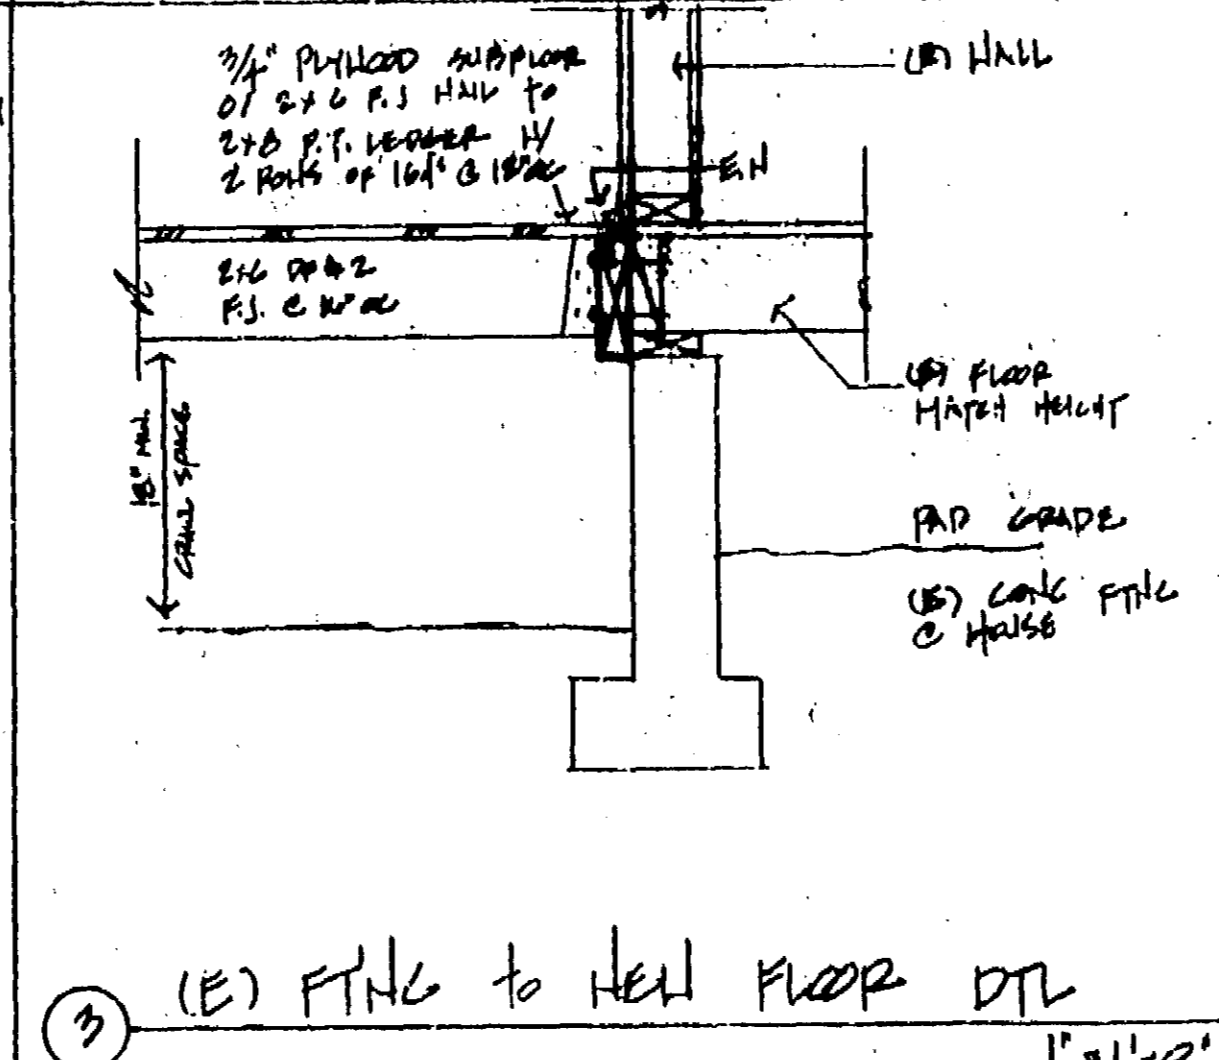 3/4" PLYWOOD SUBFLOOR
O/ 2x6 F.J NAIL to
2x8 P.T. LEDGER W/
2 ROWS OF 16d's @ 18"oc
(E) WALL
E.N
2x6 DF#2
F.J. @ 16"oc
(E) FLOOR
MATCH HEIGHT
18" MIN.
CRAWL SPACE
PAD GRADE
(E) CONC FTNG
@ HOUSE
3
(E) FTNG to NEW FLOOR DTL
1"=1'-0"